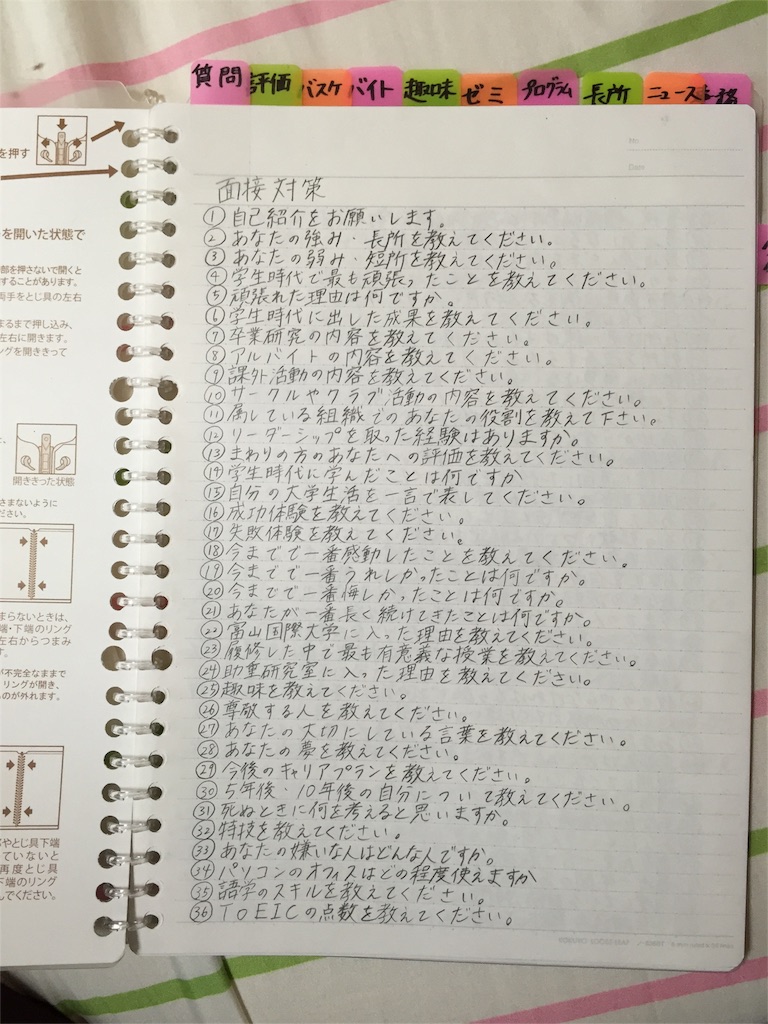 質問
評価
バスケ
バイト
趣味
ゼミ
プログラム
長所
ニュース
No.
Date
面接対策
①自己紹介をお願いします。
②あなたの強み・長所を教えてください。
③あなたの弱み・短所を教えてください。
④学生時代で最も頑張ったことを教えてください。
⑤頑張れた理由は何ですか。
⑥学生時代に出した成果を教えてください。
⑦卒業研究の内容を教えてください。
⑧アルバイトの内容を教えてください。
⑨課外活動の内容を教えてください。
⑩サークルやクラブ活動の内容を教えてください。
⑪属している組織でのあなたの役割を教えて下さい。
⑫リーダーシップを取った経験はありますか。
⑬まわりの方のあなたへの評価を教えてください。
⑭学生時代に学んだことは何ですか
⑮自分の大学生活を一言で表してください。
⑯成功体験を教えてください。
⑰失敗体験を教えてください。
⑱今までで一番感動したことを教えてください。
⑲今までで一番うれしかったことは何ですか。
⑳今までで一番悔しかったことは何ですか。
㉑あなたが一番長く続けてきたことは何ですか。
㉒富山国際大学に入った理由を教えてください。
㉓履修した中で最も有意義な授業を教えてください。
㉔助重研究室に入った理由を教えてください。
㉕趣味を教えてください。
㉖尊敬する人を教えてください。
㉗あなたの大切にしている言葉を教えてください。
㉘あなたの夢を教えてください。
㉙今後のキャリアプランを教えてください。
㉚5年後・10年後の自分について教えてください。
㉛死ぬときに何を考えると思いますか。
㉜特技を教えてください。
㉝あなたの嫌いな人はどんな人ですか。
㉞パソコンのオフィスはどの程度使えますか
㉟語学のスキルを教えてください。
㊱TOEICの点数を教えてください。
を押す
を開いた状態で
部を押さないで開くと
することがあります。
両手をとじ具の左右
まるまで押し込み、
左右に開きます。
ングを開ききって
開ききった状態
さまないように
ださい。
まらないときは、
端・下端のリング
左右からつまみ
す。
が不完全なままで
リングが開き、
ものが外れます。
部やとじ具下端
っていないと
再度とじ具
下端のリング
んでください。